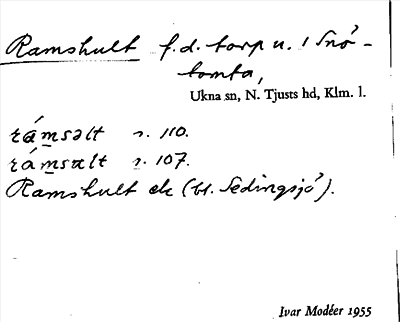 Ramshult f.d. torp u. 1 Snö-
tomta,
Ukna sn, N. Tjusts hd, Klm. l.
rámsəlt s. 110.
rámsɐlt s. 107.
Ramshult ek (bl. Sedingsjö).
Ivar Modéer 1955